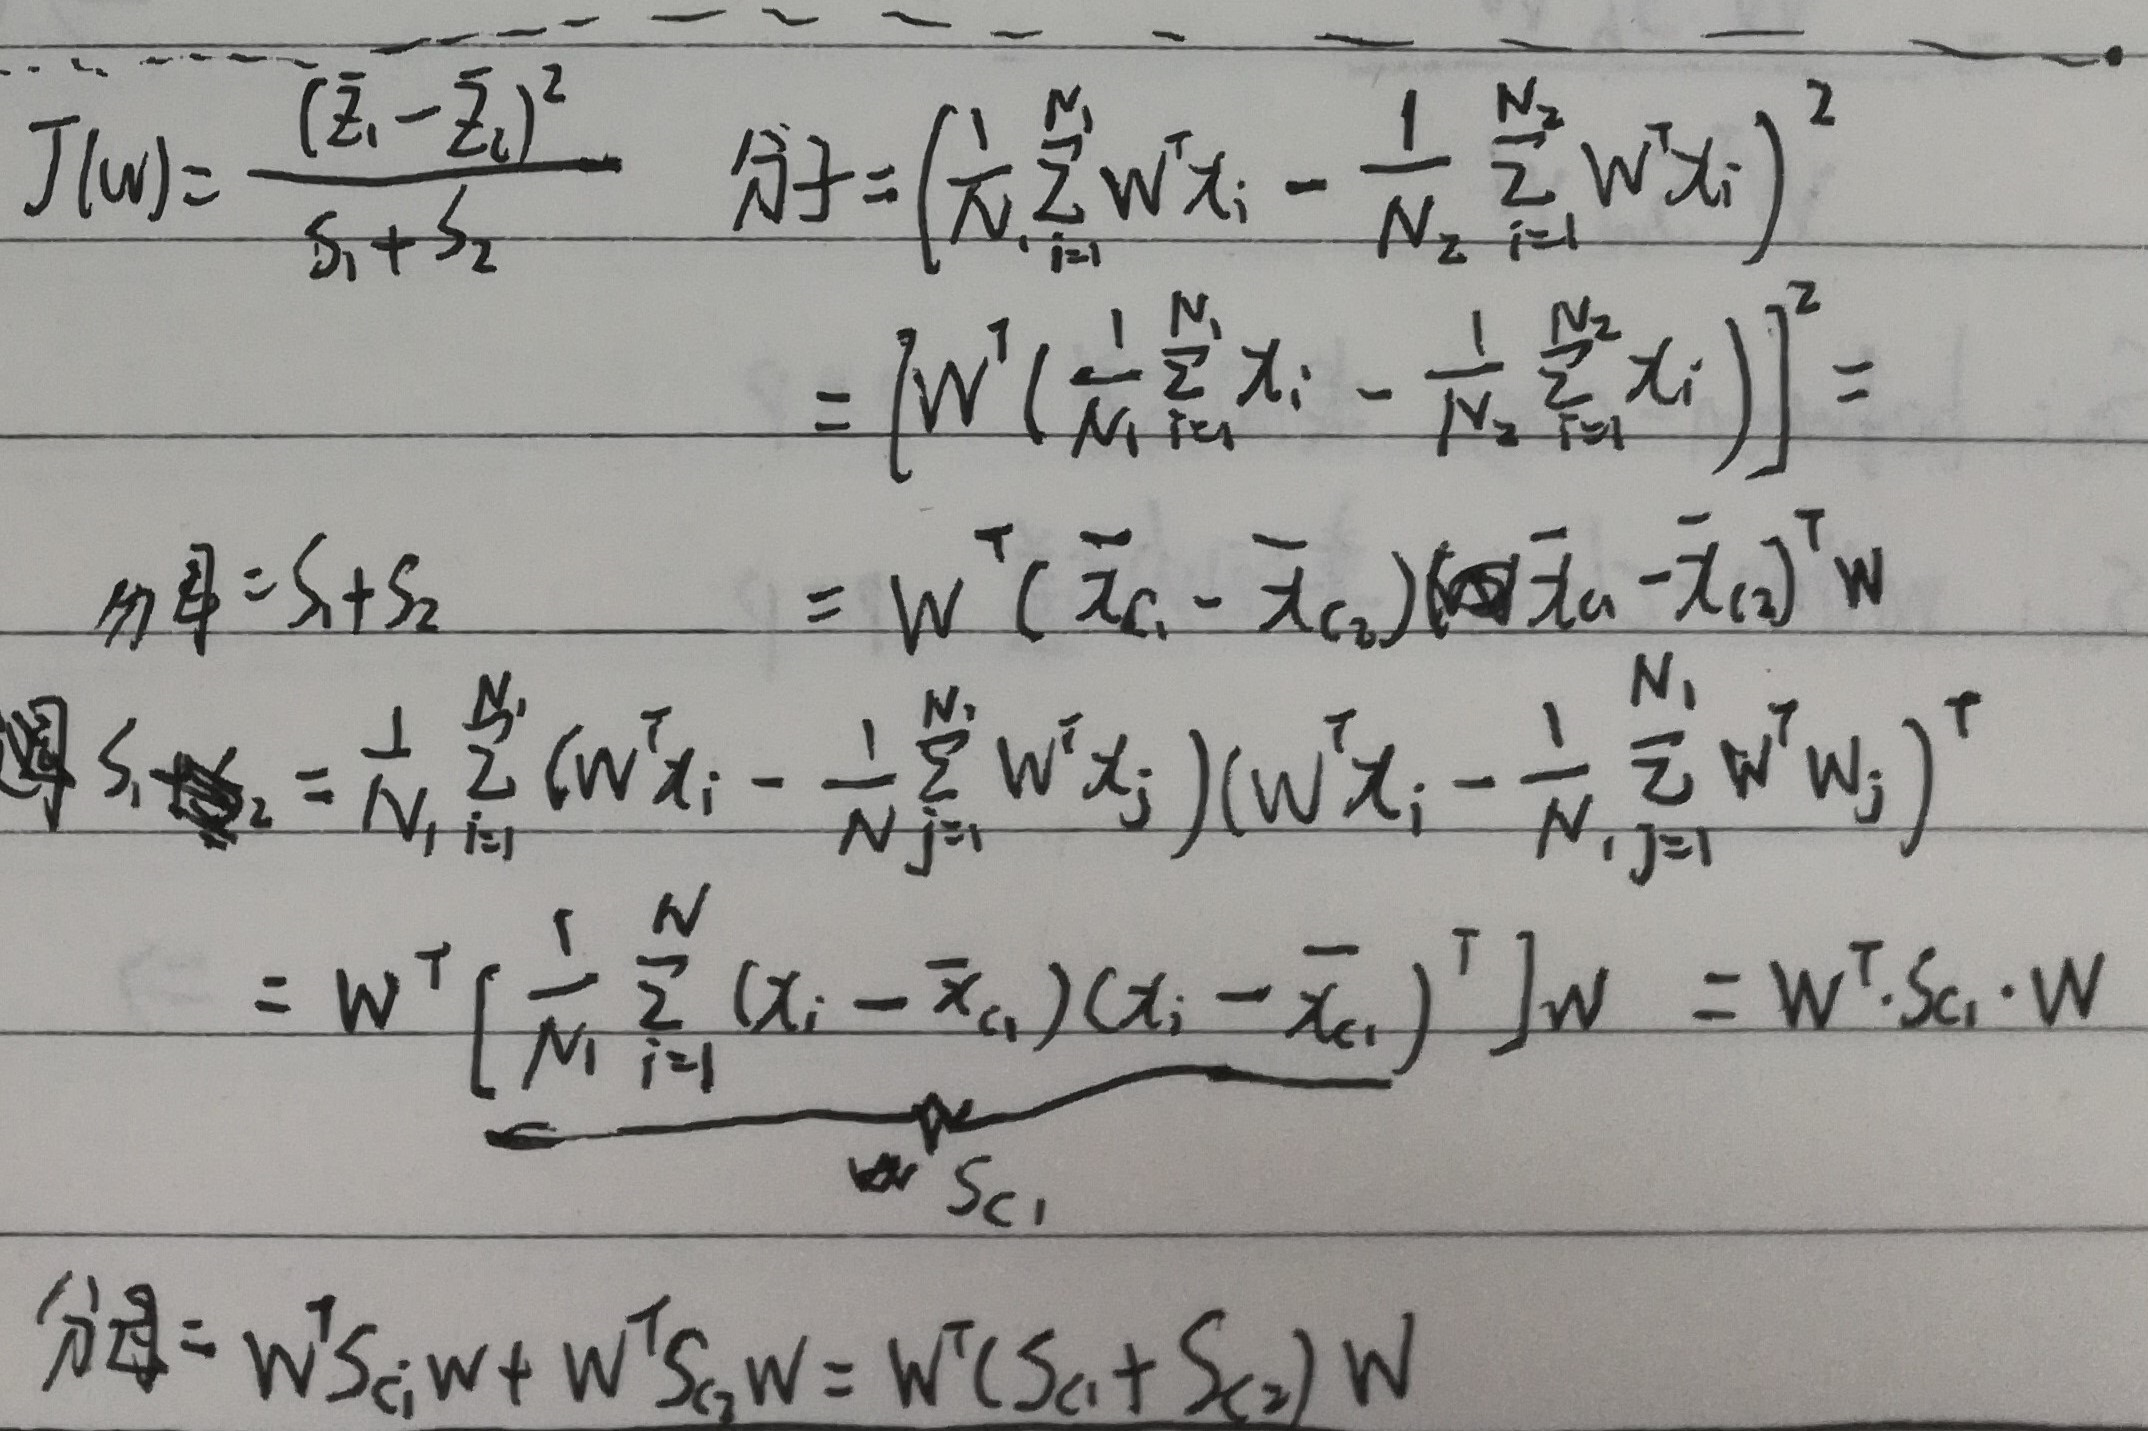 J(w) = (z̄₁ - z̄₂)² / (S₁ + S₂)  分子 = (1/N₁ Σᵢ₌₁^N₁ Wᵀxᵢ - 1/N₂ Σᵢ₌₁^N₂ Wᵀxᵢ)²
= [Wᵀ(1/N₁ Σᵢ₌₁^N₁ xᵢ - 1/N₂ Σᵢ₌₁^N₂ xᵢ)]² =
分母 = S₁ + S₂  = Wᵀ(x̄c₁ - x̄c₂)(x̄c₁ - x̄c₂)ᵀW
S₁ = 1/N₁ Σᵢ₌₁^N₁ (Wᵀxᵢ - 1/N Σⱼ₌₁^N₁ Wᵀxⱼ)(Wᵀxᵢ - 1/N₁ Σⱼ₌₁^N₁ WᵀWⱼ)ᵀ
= Wᵀ[1/N₁ Σᵢ₌₁^N (xᵢ - x̄c₁)(xᵢ - x̄c₁)ᵀ]W = Wᵀ·Sc₁·W
Sc₁
分母 = WᵀSc₁W + WᵀSc₂W = Wᵀ(Sc₁ + Sc₂)W